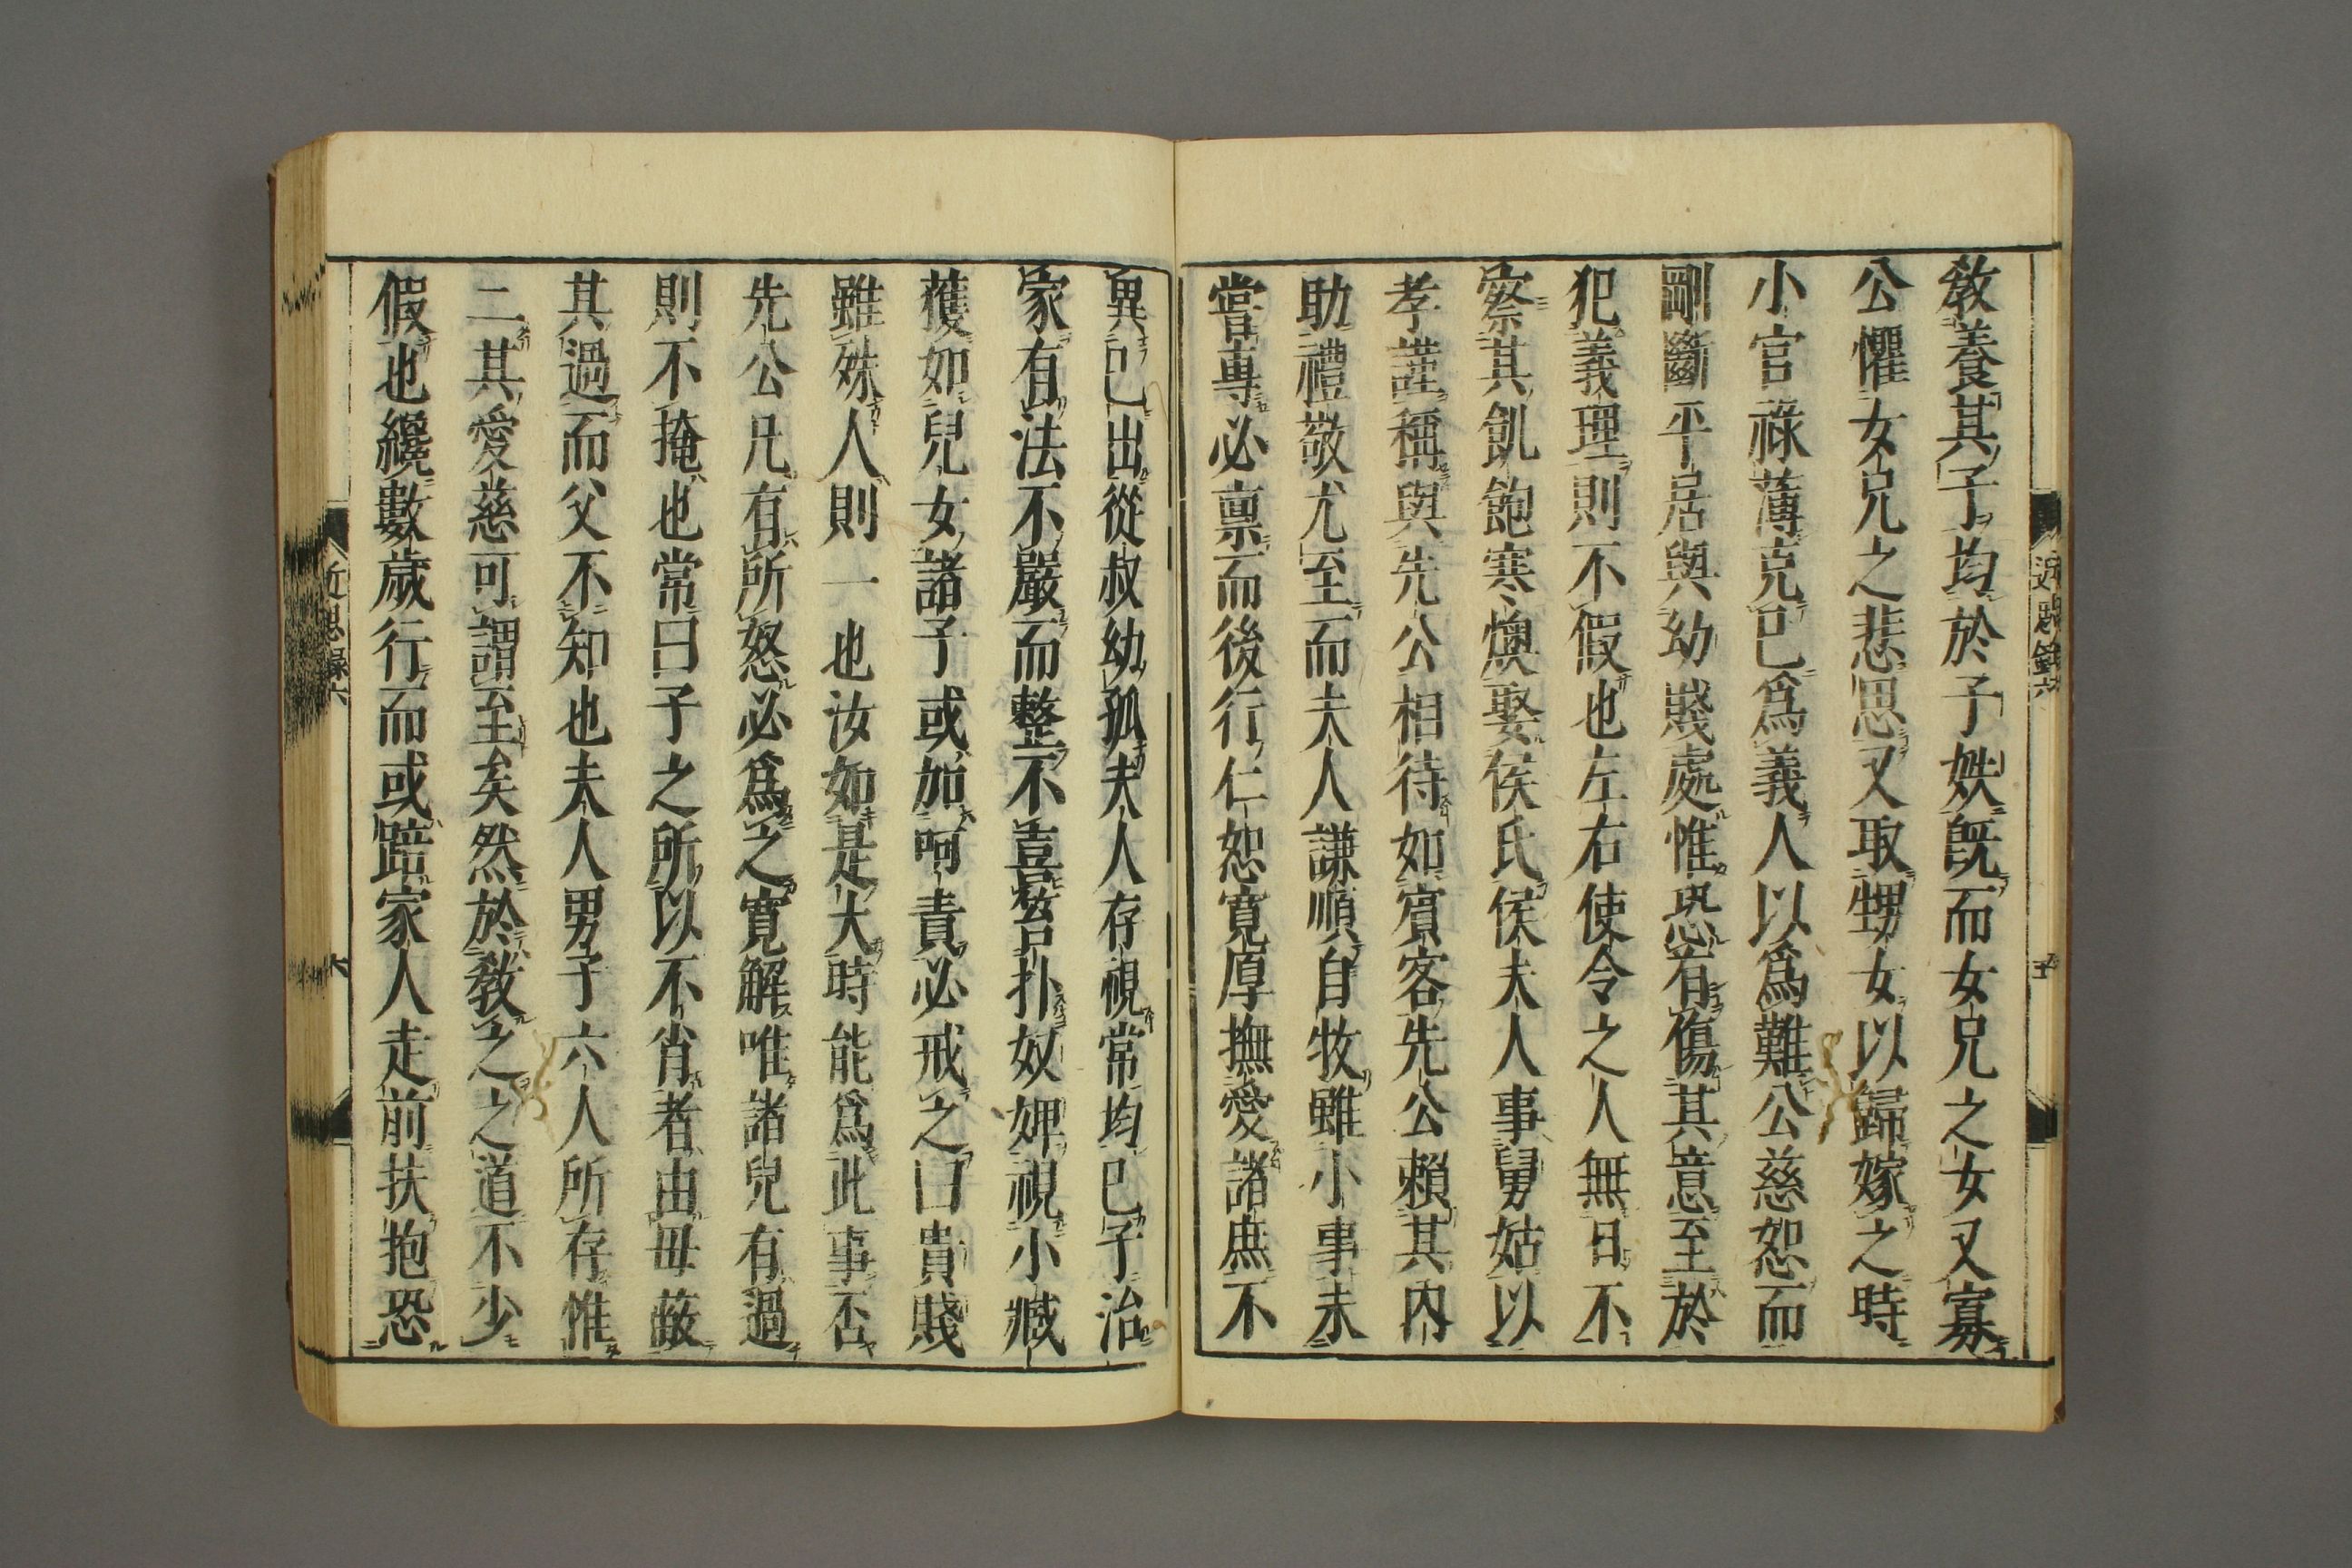 教養其子均於子姪既而女兄之女又寡
公懼女兄之悲思又取甥女以歸嫁之時
小官祿薄克已爲義人以爲難公慈恕而
剛斷平居與幼賤處惟恐有傷其意至於
犯義理則不假也左右使令之人無日不
察其飢飽寒燠娶侯氏侯夫人事舅姑以
孝謹稱與先公相待如賓客先公賴其内
助禮敬尤至而夫人謙順自牧雖小事未
嘗專必禀而後行仁恕寛厚撫愛諸庶不
異已出從叔幼孤夫人存視常均已子治
家有法不嚴而整不喜笞扑奴婢視小臧
獲如兒女諸子或加呵責必戒之曰貴賤
雖殊人則一也汝如是大時能爲此事否
先公凡有所怒必爲之寛解唯諸兒有過
則不掩也常曰子之所以不肖者由母蔽
其過而父不知也夫人男子六人所存惟
二其愛慈可謂至矣然於教之之道不少
假也纔數歲行而或踣家人走前扶抱恐
近思錄六
五
近思錄六
六